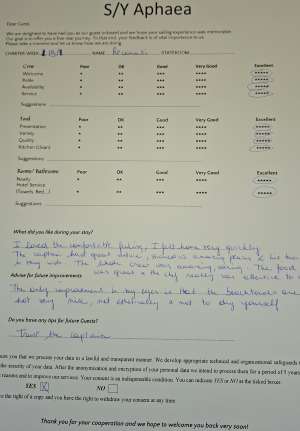 S/Y Aphaea
Dear Guest,
We are delighted to have had you as our guest onboard and we hope your sailing experience was memorable.
Our goal is to offer you a five-star journey. To that end, your feedback is of vital importance to us.
Please take a moment and let us know how we are doing.
CHARTER WEEK NAME STATEROOM
Crew Poor OK Good Very Good Excellent
Welcome • •• ••• •••• •••••
Polite • •• ••• •••• •••••
Availability • •• ••• •••• •••••
Service • •• ••• •••• •••••
Suggestions
Food Poor OK Good Very Good Excellent
Presentation • •• ••• •••• •••••
Variety • •• ••• •••• •••••
Quality • •• ••• •••• •••••
Kitchen (clean) • •• ••• •••• •••••
Suggestions
Rooms/ Bathrooms Poor OK Good Very Good Excellent
Ready • •• ••• •••• •••••
Hotel Service
(Towels, Bed...) • •• ••• •••• •••••
Suggestions
What did you like during your stay?
I loved the comfortable feeling, I felt home very quickly
The captain had great advice, amazing places & the
to stay inside. The whole crew was amazing, caring. The food
was great & the chef really was attentive to
Advice for future improvements
The only improvement to my eyes is that the beach towels are
not very, not to dry yourself
Do you have any tips for future Guests?
Trust the captain
you that we process your data in a lawful and transparent manner. We develop appropriate technical and organizational safeguards
the security of your data. After the anonymization and encryption of your personal data we intend to process them for a period of 5 years
reasons and to improve our services. Your consent is an indispensable condition. You can indicate YES or NO at the ticked boxes:
YES X NO
the right of a copy and you have the right to withdraw your consent at any time.
Thank you for your cooperation and we hope to welcome you back very soon!